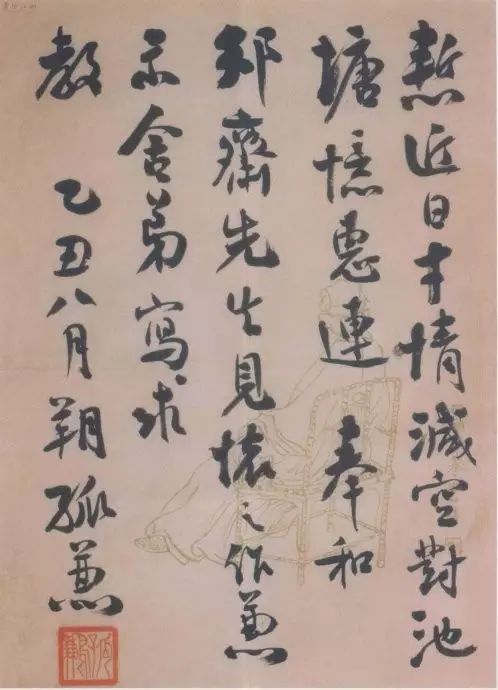 慙近日才情減空對池
塘憶惠連　奉和
邧齋先生見懷之作兼
示舍弟寫求
教　乙丑八月朔孤燕